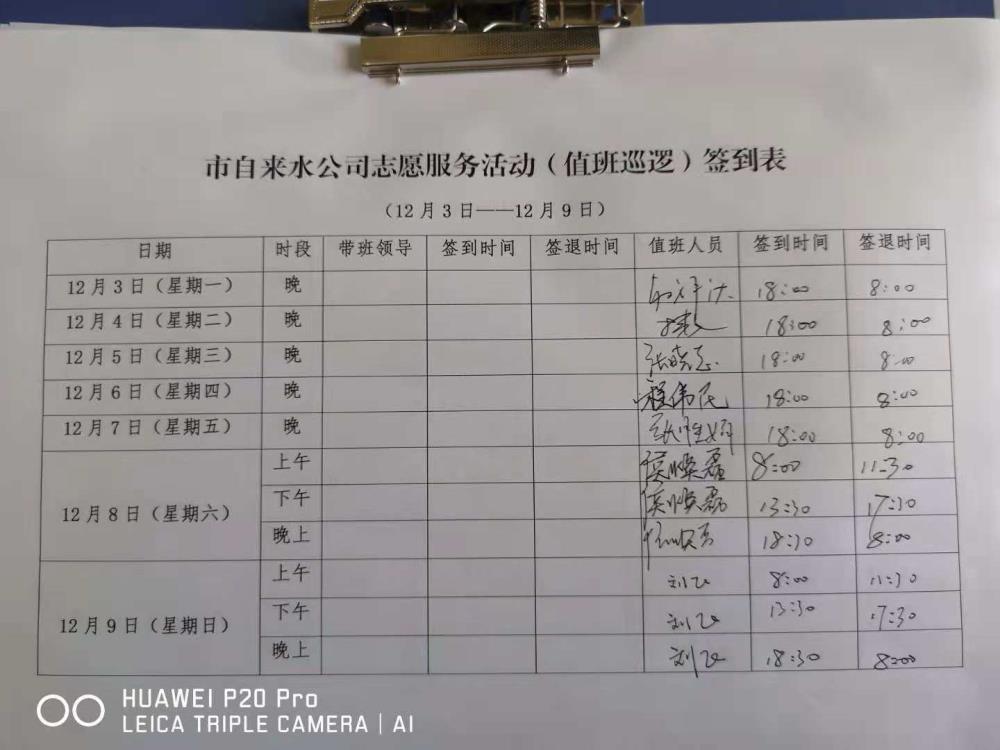 市自来水公司志愿服务活动（值班巡逻）签到表
（12月3日——12月9日）
日期 时段 带班领导 签到时间 签退时间 值班人员 签到时间 签退时间
12月3日（星期一） 晚 18:00 8:00
12月4日（星期二） 晚 18:00 8:00
12月5日（星期三） 晚 张晓志 18:00 8:00
12月6日（星期四） 晚 程伟民 18:00 8:00
12月7日（星期五） 晚 18:00 8:00
12月8日（星期六） 上午 侯焕磊 8:00 11:30
下午 侯焕磊 13:30 17:30
晚上 18:30 8:00
12月9日（星期日） 上午 刘飞 8:00 11:30
下午 刘飞 13:30 17:30
晚上 刘飞 18:30 8:00
HUAWEI P20 Pro
LEICA TRIPLE CAMERA | AI